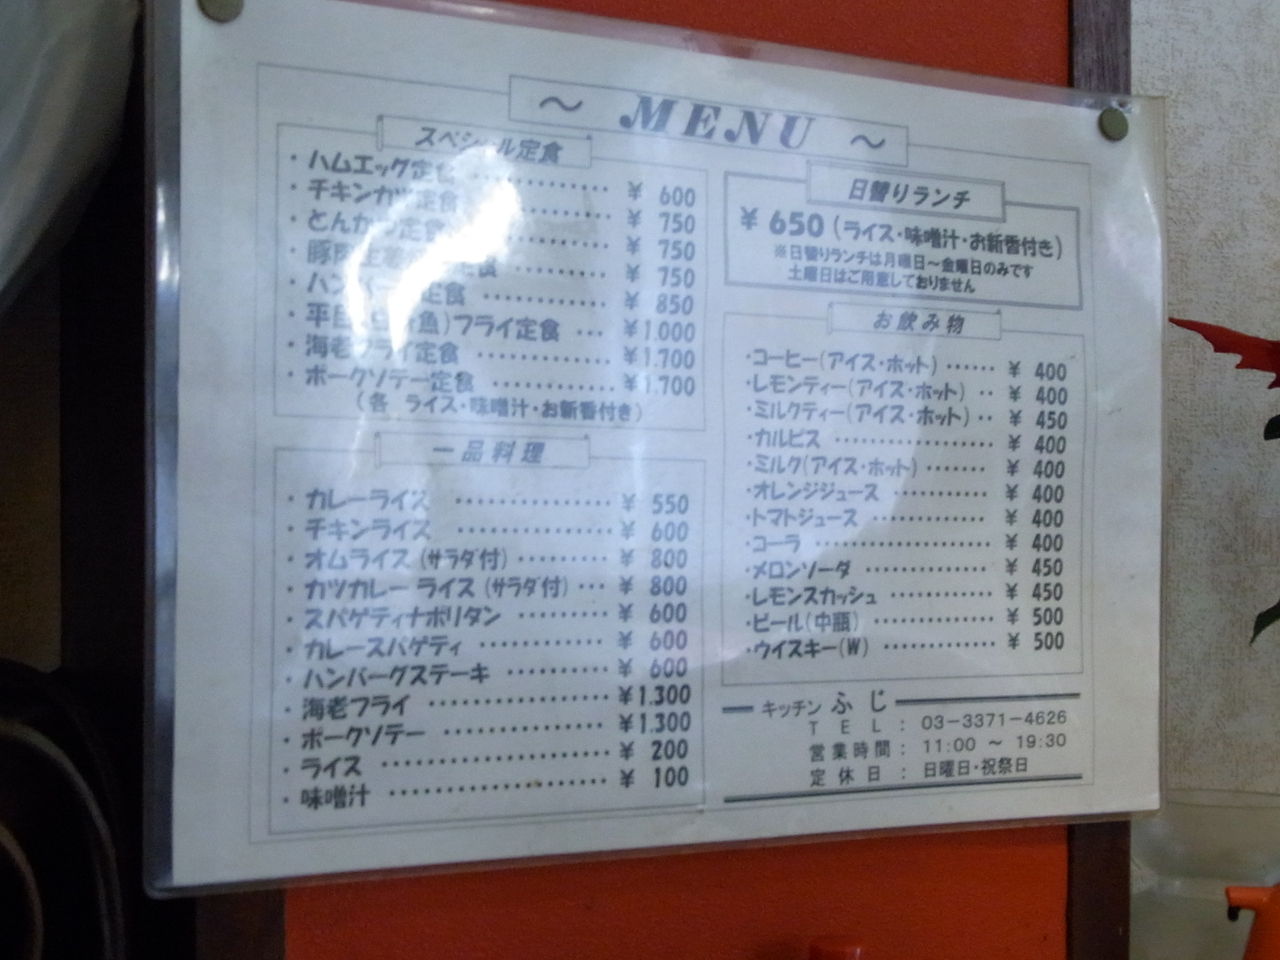 ～ MENU ～
スペシャル定食
・ハムエッグ定食 ¥ 600
・チキンカツ定食 ¥ 750
・とんかつ定食 ¥ 750
・豚肉生姜 定食 ¥ 750
・ハンバーグ定食 ¥ 850
・平目(白身魚)フライ定食 ¥1.000
・海老フライ定食 ¥1.700
・ポークソテー定食 ¥1.700
(各 ライス・味噌汁・お新香付き)
一品料理
・カレーライス ¥ 550
・チキンライス ¥ 600
・オムライス(サラダ付) ¥ 800
・カツカレーライス(サラダ付) ¥ 800
・スパゲティナポリタン ¥ 600
・カレースパゲティ ¥ 600
・ハンバーグステーキ ¥ 600
・海老フライ ¥1.300
・ポークソテー ¥1.300
・ライス ¥ 200
・味噌汁 ¥ 100
日替りランチ
¥ 650(ライス・味噌汁・お新香付き)
※日替りランチは月曜日～金曜日のみです
土曜日はご用意しておりません
お飲み物
・コーヒー(アイス・ホット) ¥ 400
・レモンティー(アイス・ホット) ¥ 400
・ミルクティー(アイス・ホット) ¥ 450
・カルピス ¥ 400
・ミルク(アイス・ホット) ¥ 400
・オレンジジュース ¥ 400
・トマトジュース ¥ 400
・コーラ ¥ 400
・メロンソーダ ¥ 450
・レモンスカッシュ ¥ 450
・ビール(中瓶) ¥ 500
・ウイスキー(W) ¥ 500
キッチン ふじ
TEL : 03-3371-4626
営業時間 : 11:00 ～ 19:30
定休日 : 日曜日・祝祭日